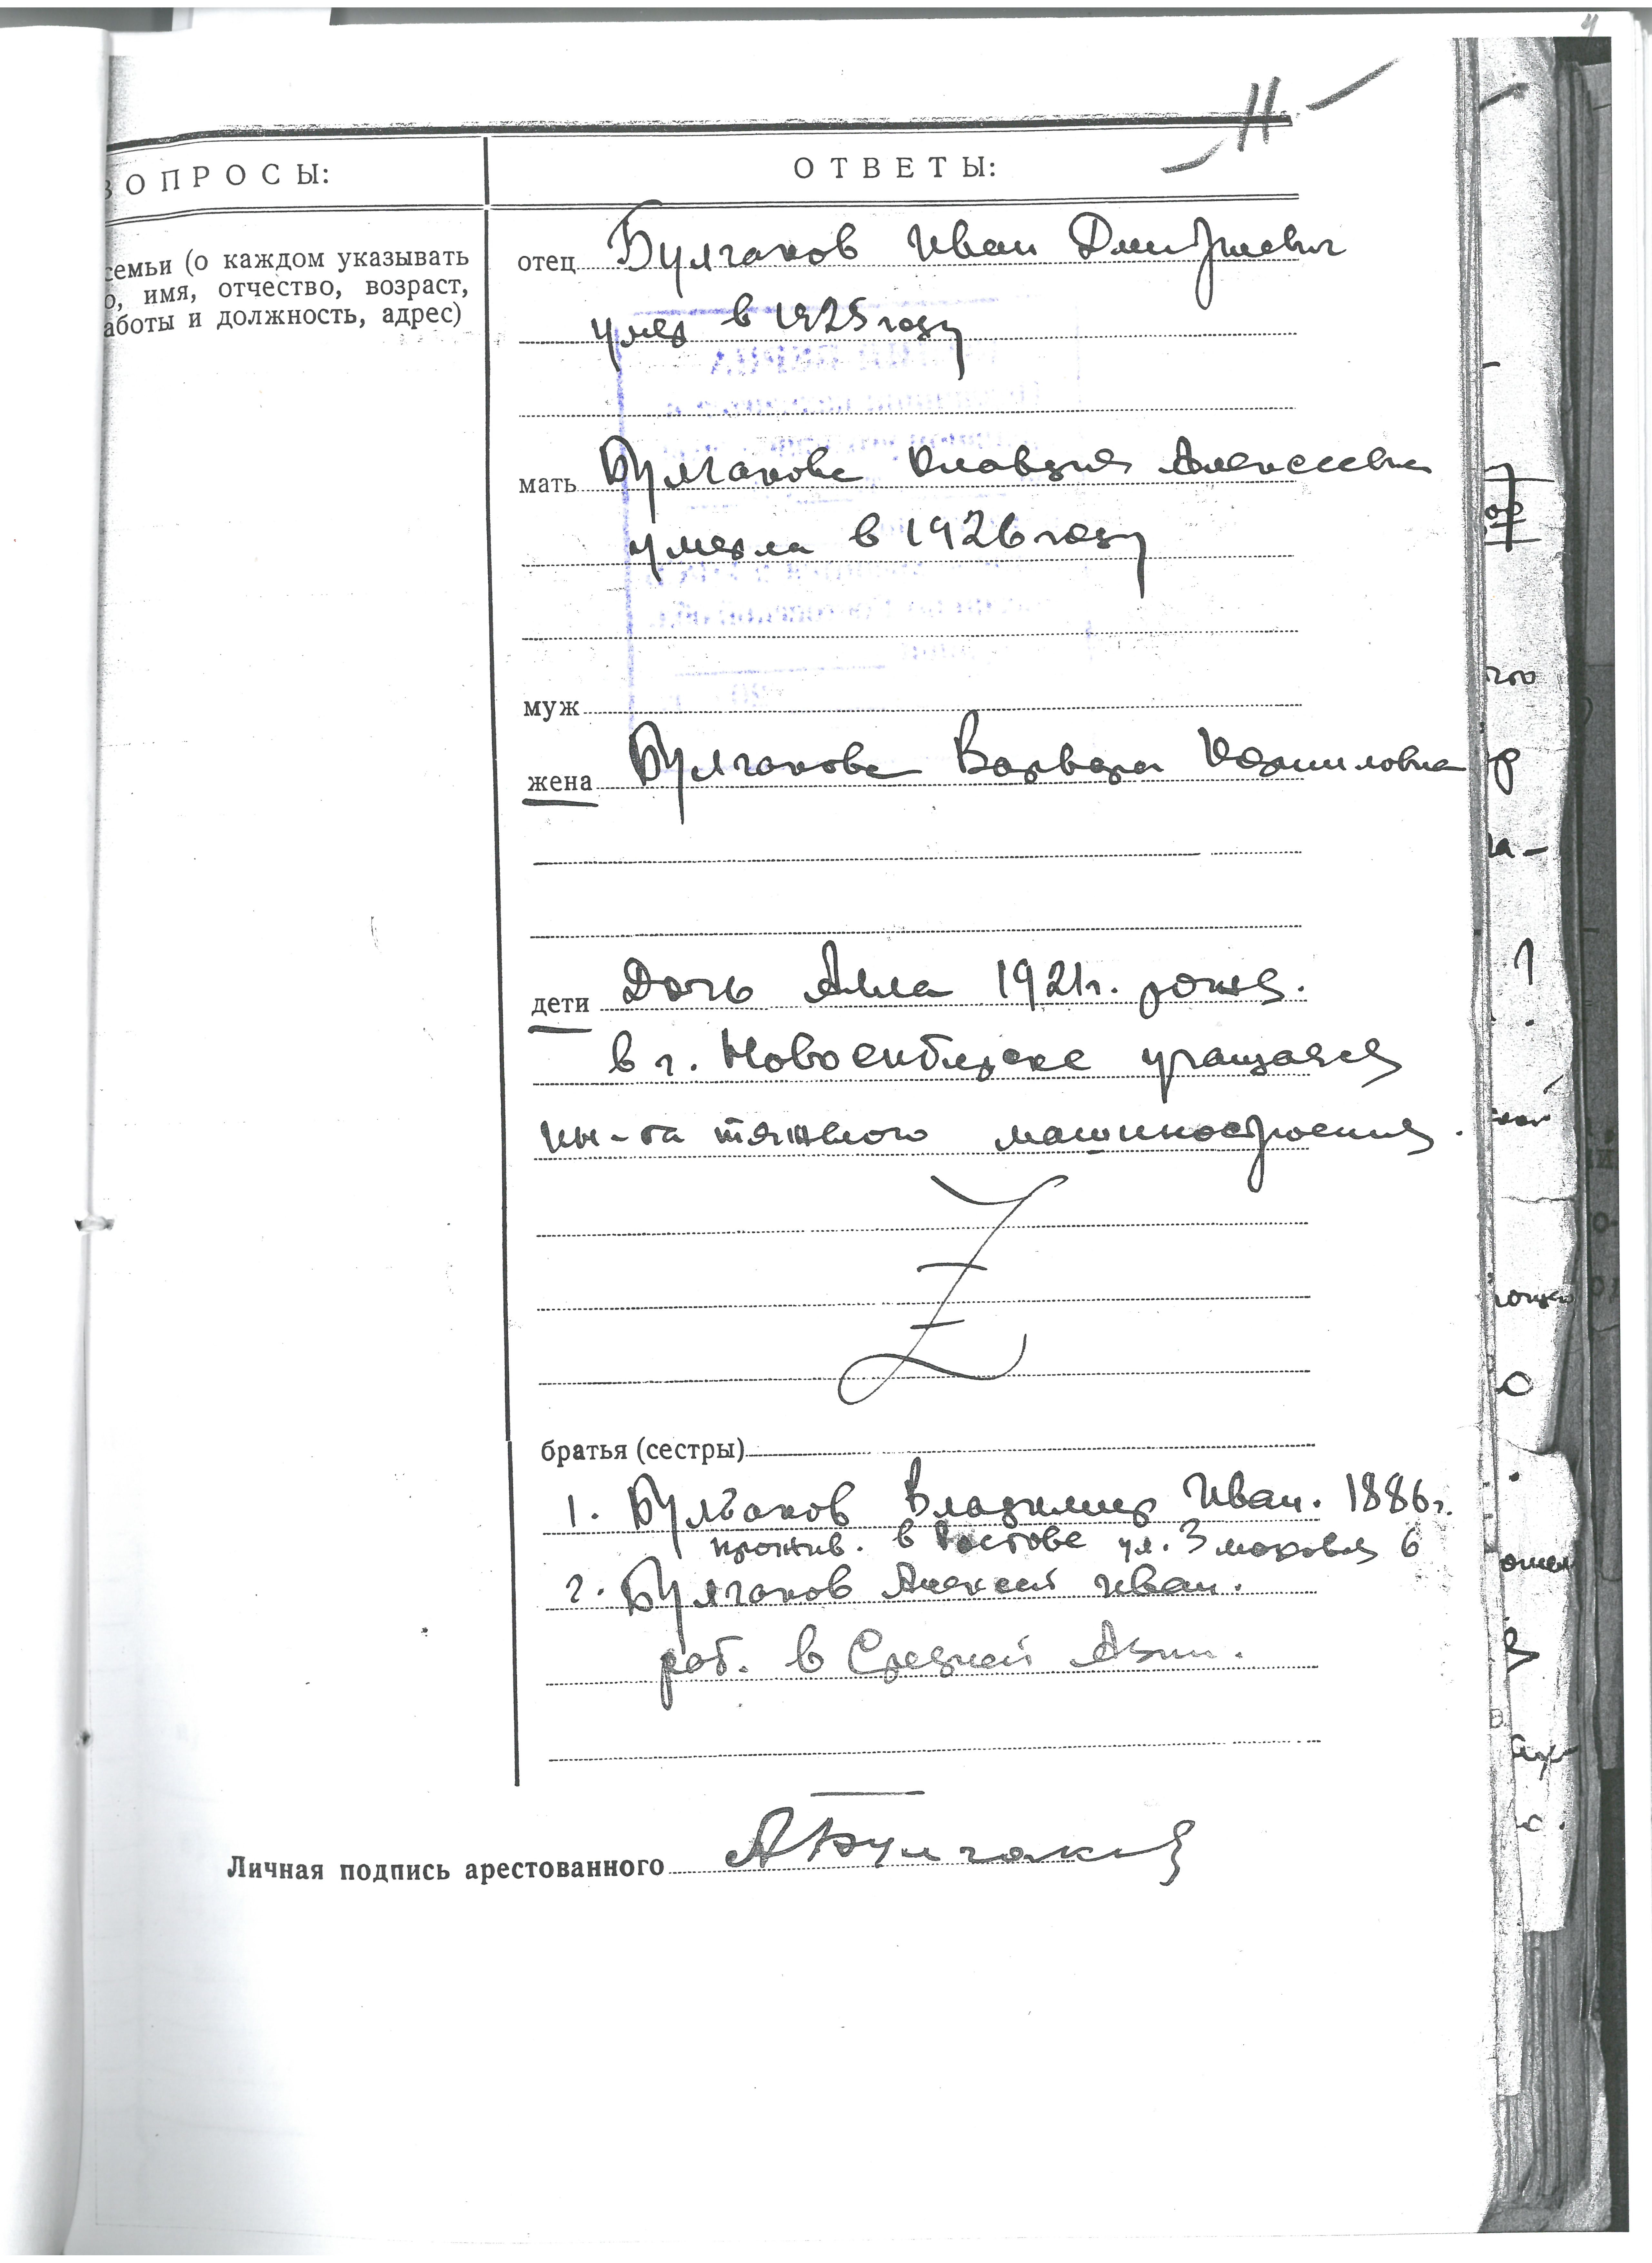 11
ВОПРОСЫ:
ОТВЕТЫ:
семьи (о каждом указывать
о, имя, отчество, возраст,
аботы и должность, адрес)
отец Булгаков Иван Дмитриевич
умер в 1925 году
мать Булгакова Клавдия Алексеевна
умерла в 1926 году
муж
жена Булгакова Варвара Корниловна
дети Дочь Алла 1921 г. рожд.
в г. Новосибирске учащаяся
ин-та тяжелого машиностроения.
братья (сестры)
1. Булгаков Владимир Иван. 1886 г.
прожив. в Ростове ул. 3 моковая 6
2. Булгаков Алексей Иван.
раб. в Средней Азии.
Личная подпись арестованного АБулгаков